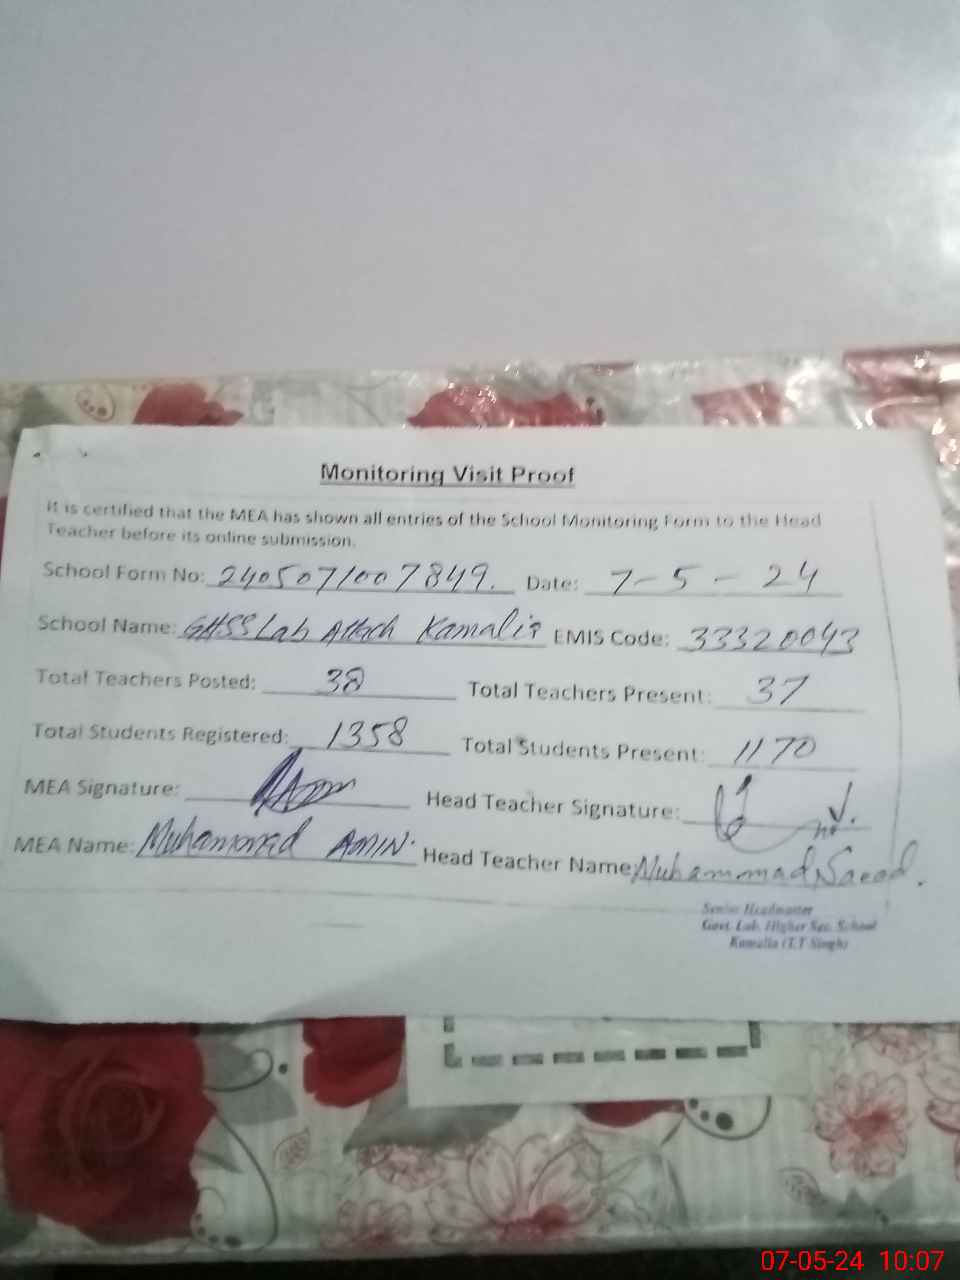 Monitoring Visit Proof
It is certified that the MEA has shown all entries of the School Monitoring Form to the Head
Teacher before its online submission.
School Form No: 2405071007849. Date: 7-5-24
School Name: GHSS Lab Attach Kamalia EMIS Code: 33320043
Total Teachers Posted: 38 Total Teachers Present: 37
Total Students Registered: 1358 Total Students Present: 1170
MEA Signature: Head Teacher Signature:
MEA Name: Muhammad AMIN. Head Teacher Name: Muhammad Saeed.
Senior Headmaster
Govt. Lab. Higher Sec. School
Kamalia (T.T Singh)
07-05-24 10:07